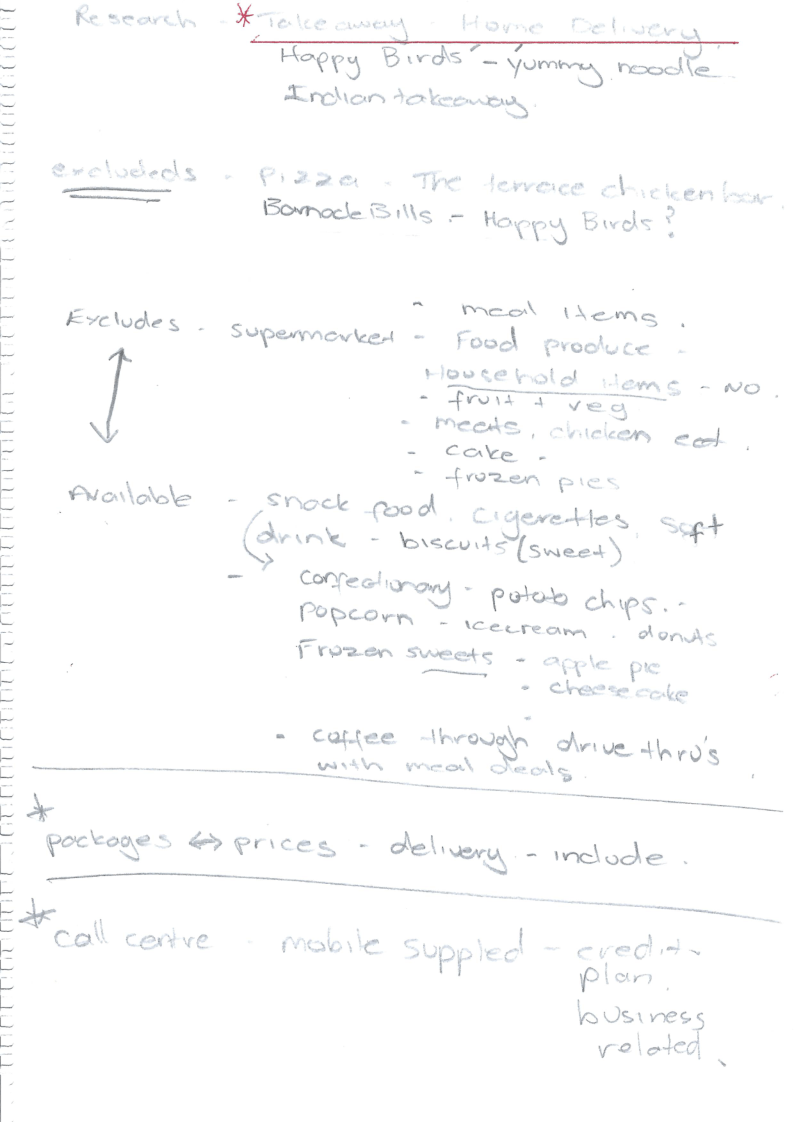 Research - * Takeaway - Home Delivery
Happy Birds - yummy noodle
Indian takeaway.
excludeds - pizza - The terrace chicken bar.
Bills - Happy Birds?
- meal items.
Excludes - supermarket - Food produce -
Household items - NO.
- fruit + veg
- meats, chicken
- cake -
- frozen pies
Available - snack food, cigerettes, soft
drink - biscuits (sweet)
- confectionary - potato chips. -
popcorn - icecream . donuts
Frozen sweets - apple pie
- cheesecake
- coffee through drive thru's
with meal deals.
*
packages ↔ prices - delivery - include.
*
call centre - mobile suppled - credit -
plan.
business
related.